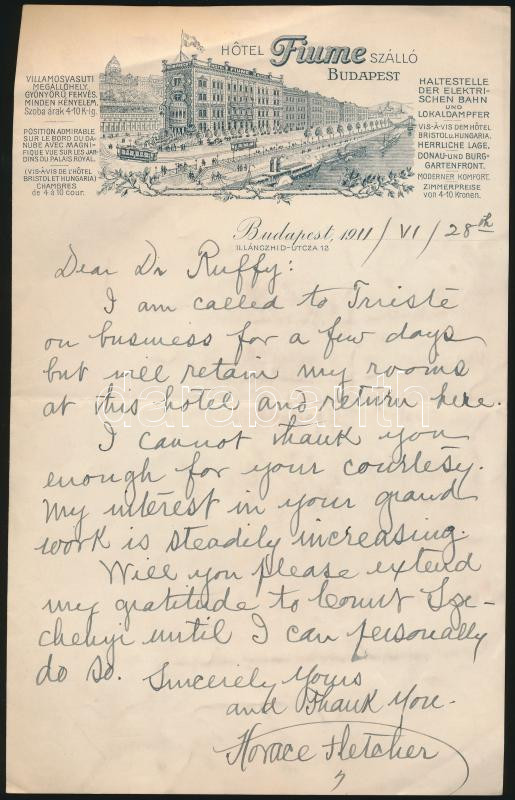 HÔTEL Fiume SZÁLLÓ
BUDAPEST
VILLAMOSVASUTI
MEGÁLLÓHELY.
GYÖNYÖRŰ FEKVÉS.
MINDEN KÉNYELEM.
Szoba árak 4-10 K-ig.
POSITION ADMIRABLE
SUR LE BORD DU DA-
NUBE AVEC MAGNI-
FIQUE VUE SUR LES JAR-
DINS DU PALAIS ROYAL.
(VIS-À-VIS DE L'HÔTEL
BRISTOL ET HUNGARIA)
CHAMBRES
de 4 à 10 cour.
HALTESTELLE
DER ELEKTRI-
SCHEN BAHN
UND
LOKALDAMPFER
VIS-À-VIS DEM HÔTEL
BRISTOL u. HUNGARIA.
HERRLICHE LAGE.
DONAU- UND BURG-
GARTENFRONT.
MODERNER KOMFORT.
ZIMMERPREISE
von 4-10 Kronen.
Budapest, 1911/VI/28th
II. LÁNCZHID-UTCZA 12
Dear Dr Ruffy:
I am called to Trieste
on business for a few days
but will retain my rooms
at this hotel and return here.
I cannot thank you
enough for your courtesy.
My interest in your grand
work is steadily increasing.
Will you please extend
my gratitude to Count Sze-
chenyi until I can personally
do so. Sincerely Yours
and Thank You.
Horace Fletcher
darabanth